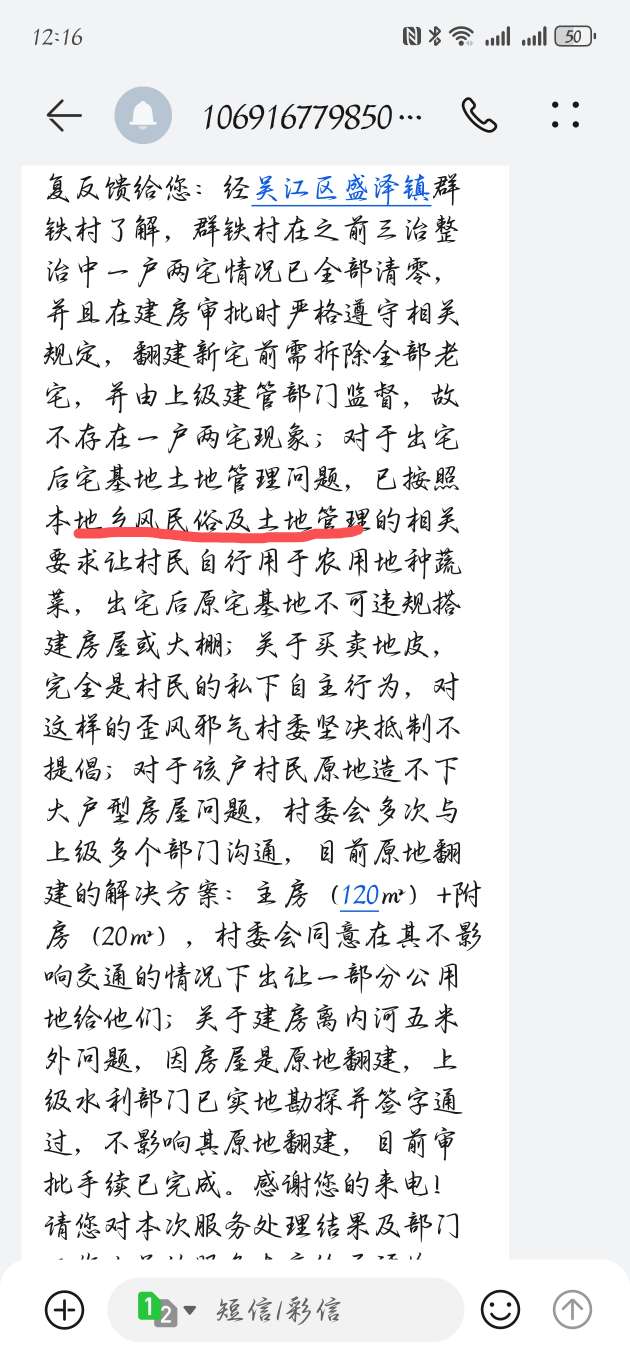 12:16
50
106916779850···
复反馈给您：经吴江区盛泽镇群
铁村了解，群铁村在之前三治整
治中一户两宅情况已全部清零，
并且在建房审批时严格遵守相关
规定，翻建新宅前需拆除全部老
宅，并由上级建管部门监督，故
不存在一户两宅现象；对于出宅
后宅基地土地管理问题，已按照
本地乡风民俗及土地管理的相关
要求让村民自行用于农用地种蔬
菜，出宅后原宅基地不可违规搭
建房屋或大棚；关于买卖地皮，
完全是村民的私下自主行为，对
这样的歪风邪气村委坚决抵制不
提倡；对于该户村民原地造不下
大户型房屋问题，村委会多次与
上级多个部门沟通，目前原地翻
建的解决方案：主房（120㎡）+附
房（20㎡），村委会同意在其不影
响交通的情况下出让一部分公用
地给他们；关于建房离内河五米
外问题，因房屋是原地翻建，上
级水利部门已实地勘探并签字通
过，不影响其原地翻建，目前审
批手续已完成。感谢您的来电！
请您对本次服务处理结果及部门
1
2
短信/彩信